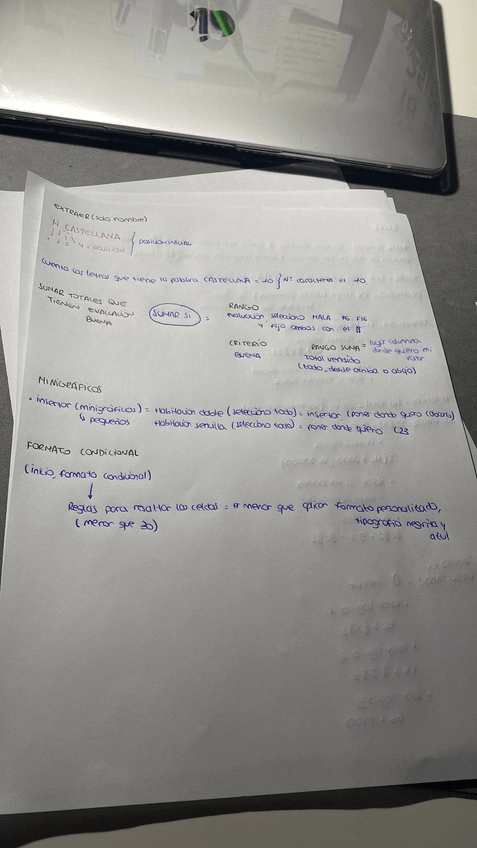 EXTRAER (solo nombre)
H. CASTELLANA
1 2 3 4 = posición } POSICIÓN INICIAL
Cuento las letras que tiene la palabra CASTELLANA = 10 } Nº caracteres el 10
SUMAR TOTALES QUE
TIENEN EVALUACIÓN
BUENA
SUMAR SI =
RANGO
evaluación selecciono MALA F6 F16
y fijo ambos con el $
CRITERIO
BUENA
RANGO SUMA = columna
donde quiero mi
Total vendido
(todo, desde arriba o abajo)
MINIGRÁFICOS
• insertar (minigráficos) = Habitación doble (selecciono todo) = insertar (poner donde quiero
↳ pequeños Habitación sencilla (selecciono todo) = poner donde quiero C23
FORMATO CONDICIONAL
(inicio, formato condicional)
↓
Reglas para resaltar las celdas = es menor que aplicar formato personalizado,
(menor que 30) tipografía negrita y
azul